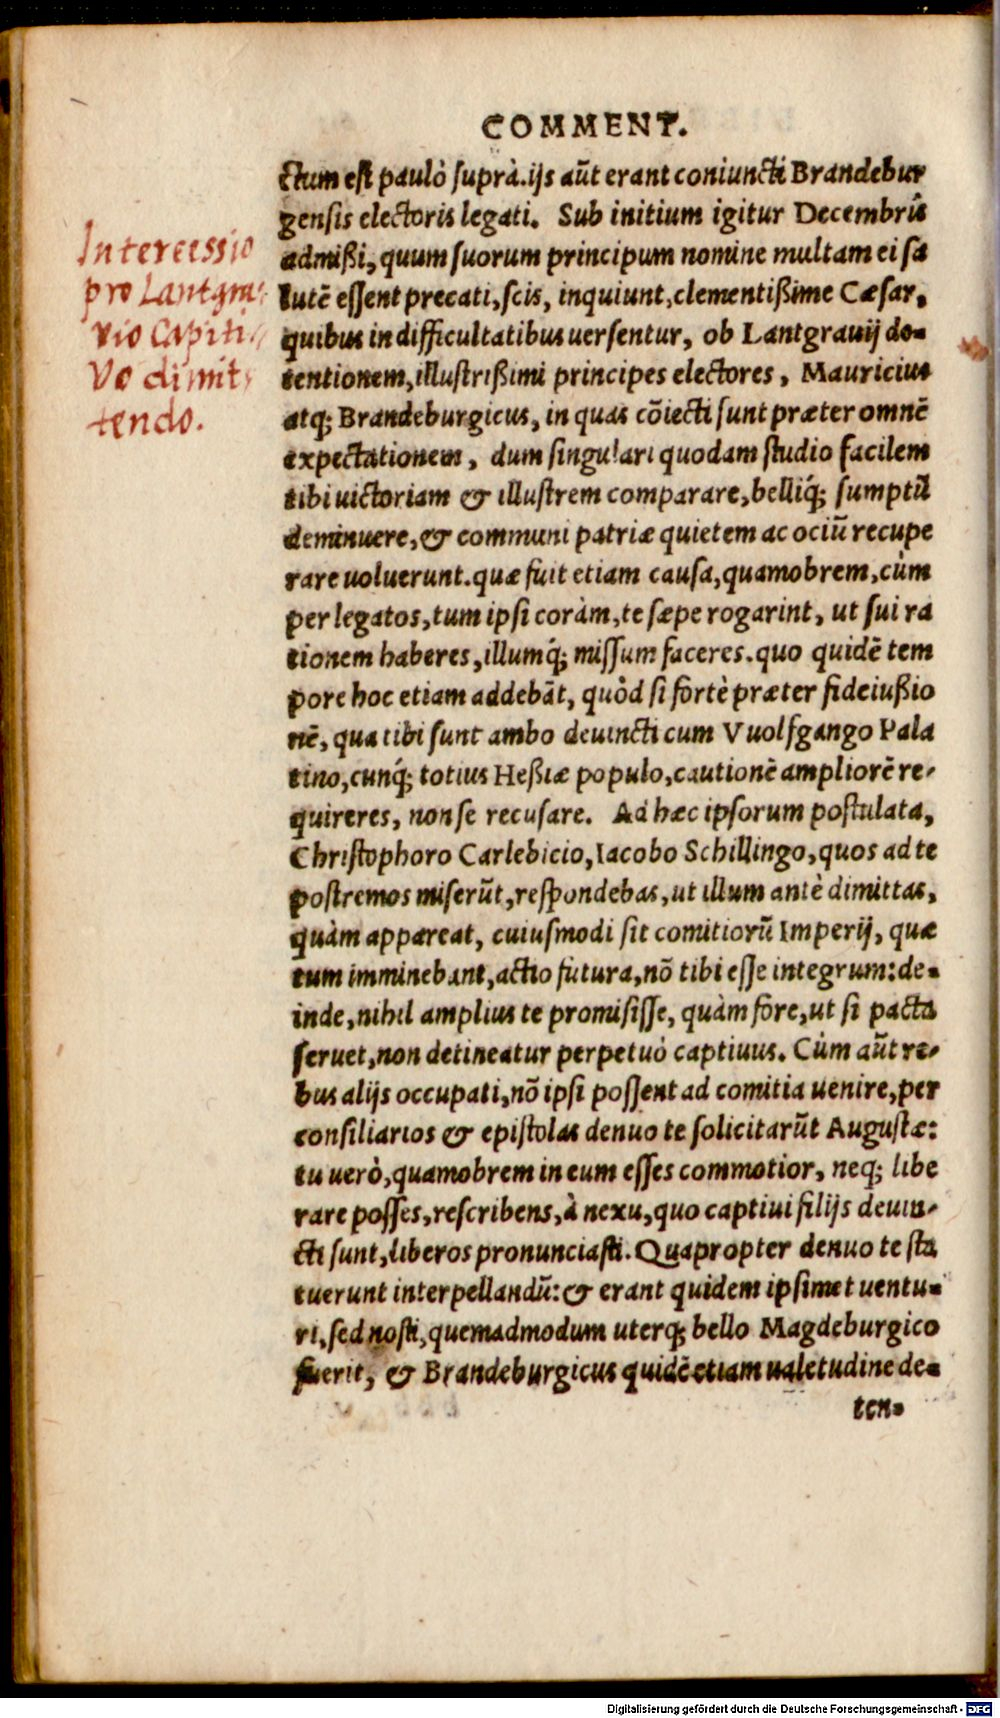 COMMENT.
ctum est paulò suprà. ijs aũt erant coniuncti Brandebur
gensis electoris legati. Sub initium igitur Decembris
admißi, quum suorum principum nomine multam ei sa
lutē essent precati, scis, inquiunt, clementißime Cæsar,
quibus in difficultatibus uersentur, ob Lantgrauij de-
tentionem, illustrißimi principes electores, Mauricius
atq; Brandeburgicus, in quas cōiecti sunt præter omnē
expectationem, dum singulari quodam studio facilem
tibi uictoriam & illustrem comparare, belliq́; sumptũ
deminuere, & communi patriæ quietem ac ociũ recupe
rare uoluerunt. quæ fuit etiam causa, quamobrem, cùm
per legatos, tum ipsi coràm, te sæpe rogarint, ut sui ra
tionem haberes, illumq́; missum faceres. quo quidē tem
pore hoc etiam addebāt, quòd si fortè præter fideiußio
nē, qua tibi sunt ambo deuincti cum Vuolfgango Pala
tino, cunq́; totius Heßiæ populo, cautionē ampliorē re-
quireres, non se recusare. Ad hæc ipsorum postulata,
Christophoro Carlebicio, Iacobo Schillingo, quos ad te
postremos miserũt, respondebas, ut illum antè dimittas,
quàm appareat, cuiusmodi sit comitiorũ Imperij, quæ
tum imminebant, actio futura, nō tibi esse integrum: de-
inde, nihil amplius te promisisse, quàm fore, ut si pacta
seruet, non detineatur perpetuò captiuus. Cùm aũt re-
bus alijs occupati, nō ipsi possent ad comitia uenire, per
consiliarios & epistolas denuo te solicitarũt Augustæ:
tu uerò, quamobrem in eum esses commotior, neq; libe
rare posses, rescribens, à nexu, quo captiui filijs deuin-
cti sunt, liberos pronunciasti. Quapropter denuo te sta
tuerunt interpellandũ: & erant quidem ipsimet uentu-
ri, sed nosti, quemadmodum uterq; bello Magdeburgico
fuerit, & Brandeburgicus quidē etiam ualetudine de-
ten-
Intercessio
pro Lantgra
vio Capiti
Vo dimit
tendo.
Digitalisierung gefördert durch die Deutsche Forschungsgemeinschaft - DFG